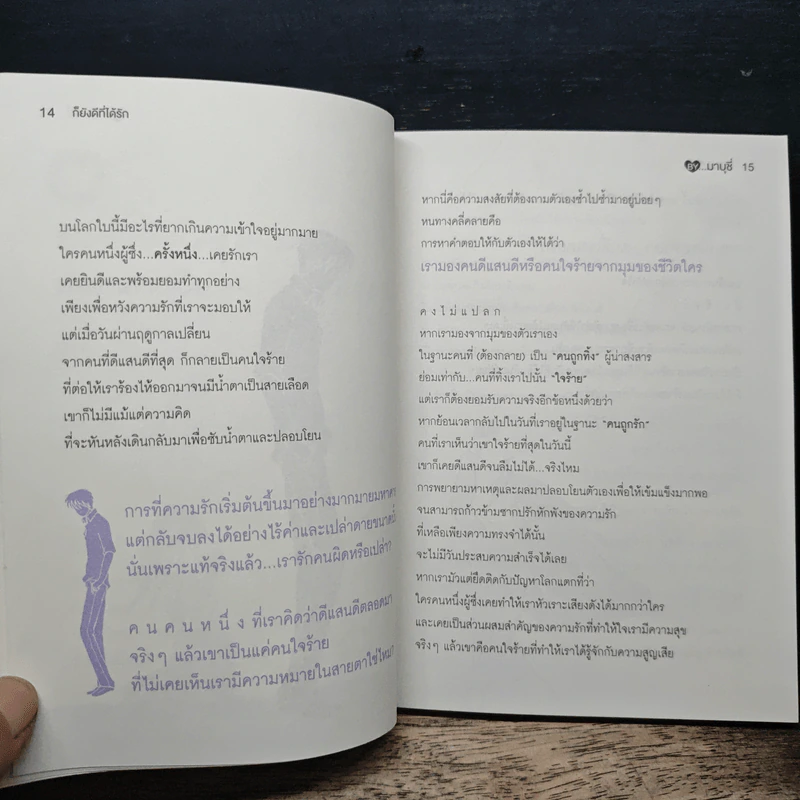 14 ก็ยังดีที่ได้รัก
บนโลกใบนี้มีอะไรที่ยากเกินความเข้าใจอยู่มากมาย
ใครคนหนึ่งผู้ซึ่ง...ครั้งหนึ่ง...เคยรักเรา
เคยยินดีและพร้อมยอมทำทุกอย่าง
เพียงเพื่อหวังความรักที่เราจะมอบให้
แต่เมื่อวันผ่านฤดูกาลเปลี่ยน
จากคนที่ดีแสนดีที่สุด ก็กลายเป็นคนใจร้าย
ที่ต่อให้เราร้องไห้ออกมาจนมีน้ำตาเป็นสายเลือด
เขาก็ไม่มีแม้แต่ความคิด
ที่จะหันหลังเดินกลับมาเพื่อซับน้ำตาและปลอบโยน
การที่ความรักเริ่มต้นขึ้นมาอย่างมากมายมหาศาล
แต่กลับจบลงได้อย่างไร้ค่าและเปล่าดายขนาดนี้
นั่นเพราะแท้จริงแล้ว...เรารักคนผิดหรือเปล่า?
ค น ค น ห นึ่ ง ที่เราคิดว่าดีแสนดีตลอดมา
จริงๆ แล้วเขาเป็นแค่คนใจร้าย
ที่ไม่เคยเห็นเรามีความหมายในสายตาใช่ไหม?
BY...มาบุชี่ 15
หากนี่คือความสงสัยที่ต้องถามตัวเองซ้ำไปซ้ำมาอยู่บ่อยๆ
หนทางคลี่คลายคือ
การหาคำตอบให้กับตัวเองให้ได้ว่า
เรามองคนดีแสนดีหรือคนใจร้ายจากมุมของชีวิตใคร
ค ง ไ ม่ แ ป ล ก
หากเรามองจากมุมของตัวเราเอง
ในฐานะคนที่ (ต้องกลาย) เป็น “คนถูกทิ้ง” ผู้น่าสงสาร
ย่อมเท่ากับ...คนที่ทิ้งเราไปนั้น “ใจร้าย”
แต่เราก็ต้องยอมรับความจริงอีกข้อหนึ่งด้วยว่า
หากย้อนเวลากลับไปในวันที่เราอยู่ในฐานะ “คนถูกรัก”
คนที่เราเห็นว่าเขาใจร้ายที่สุดในวันนี้
เขาก็เคยดีแสนดีจนลืมไม่ได้...จริงไหม
การพยายามหาเหตุและผลมาปลอบโยนตัวเองเพื่อให้เข้มแข็งมากพอ
จนสามารถก้าวข้ามซากปรักหักพังของความรัก
ที่เหลือเพียงความทรงจำได้นั้น
จะไม่มีวันประสบความสำเร็จได้เลย
หากเรามัวแต่ยึดติดกับปัญหาโลกแตกที่ว่า
ใครคนหนึ่งผู้ซึ่งเคยทำให้เราหัวเราะเสียงดังได้มากกว่าใคร
และเคยเป็นส่วนผสมสำคัญของความรักที่ทำให้ใจเรามีความสุข
จริงๆ แล้วเขาคือคนใจร้ายที่ทำให้เราได้รู้จักกับความสูญเสีย